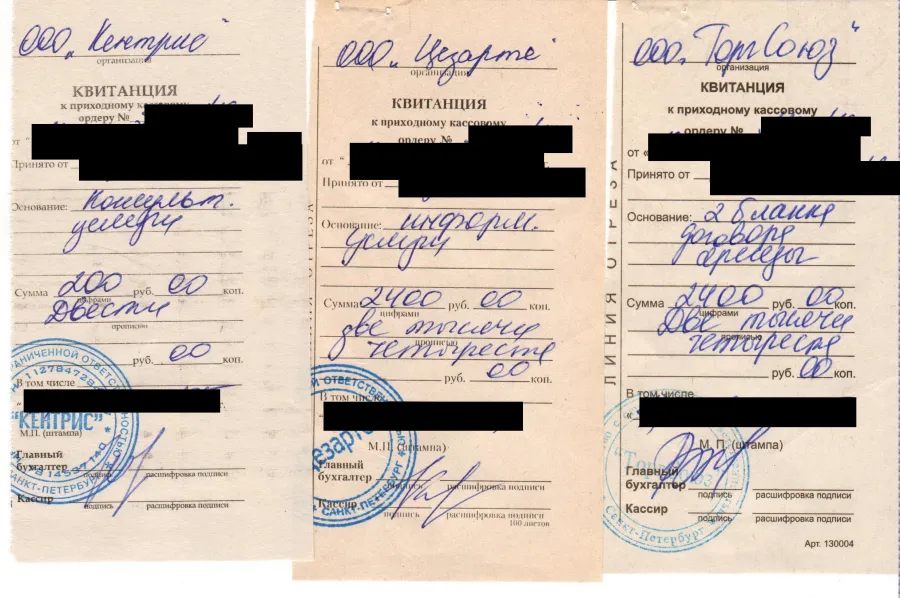 ООО „Кентрис"
организация
КВИТАНЦИЯ
к приходному кассовому
ордеру №
от "
Принято от
Основание: Консульт.
услуги
Сумма 200 руб. 00 коп.
цифрами
Двести
прописью
руб. 00 коп.
В том числе
"КЕНТРИС"
САНКТ-ПЕТЕРБУРГ
М.П. (штампа)
Главный
бухгалтер
подпись расшифровка подписи
Кассир
подпись расшифровка подписи
ООО „Цезарте"
организация
КВИТАНЦИЯ
к приходному кассовому
ордеру №
от "
Принято от
Основание: информ.
услуги
Сумма 2400 руб. 00 коп.
цифрами
две тысячи
прописью
четыреста
руб. 00 коп.
В том числе
Цезарте
САНКТ-ПЕТЕРБУРГ
М.П. (штампа)
Главный
бухгалтер
подпись расшифровка подписи
Кассир
подпись расшифровка подписи
100 листов
ЛИНИЯ ОТРЕЗА
ООО „ТоргСоюз"
организация
КВИТАНЦИЯ
к приходному кассовому
ордеру №
от «
Принято от
Основание: 2 бланка
договора
аренды
Сумма 2400 руб. 00 коп.
цифрами
Две тысячи
прописью
четыреста
руб. 00 коп.
В том числе
«
Санкт-Петербург
М. П. (штампа)
Главный
бухгалтер
подпись расшифровка подписи
Кассир
подпись расшифровка подписи
Арт. 130004